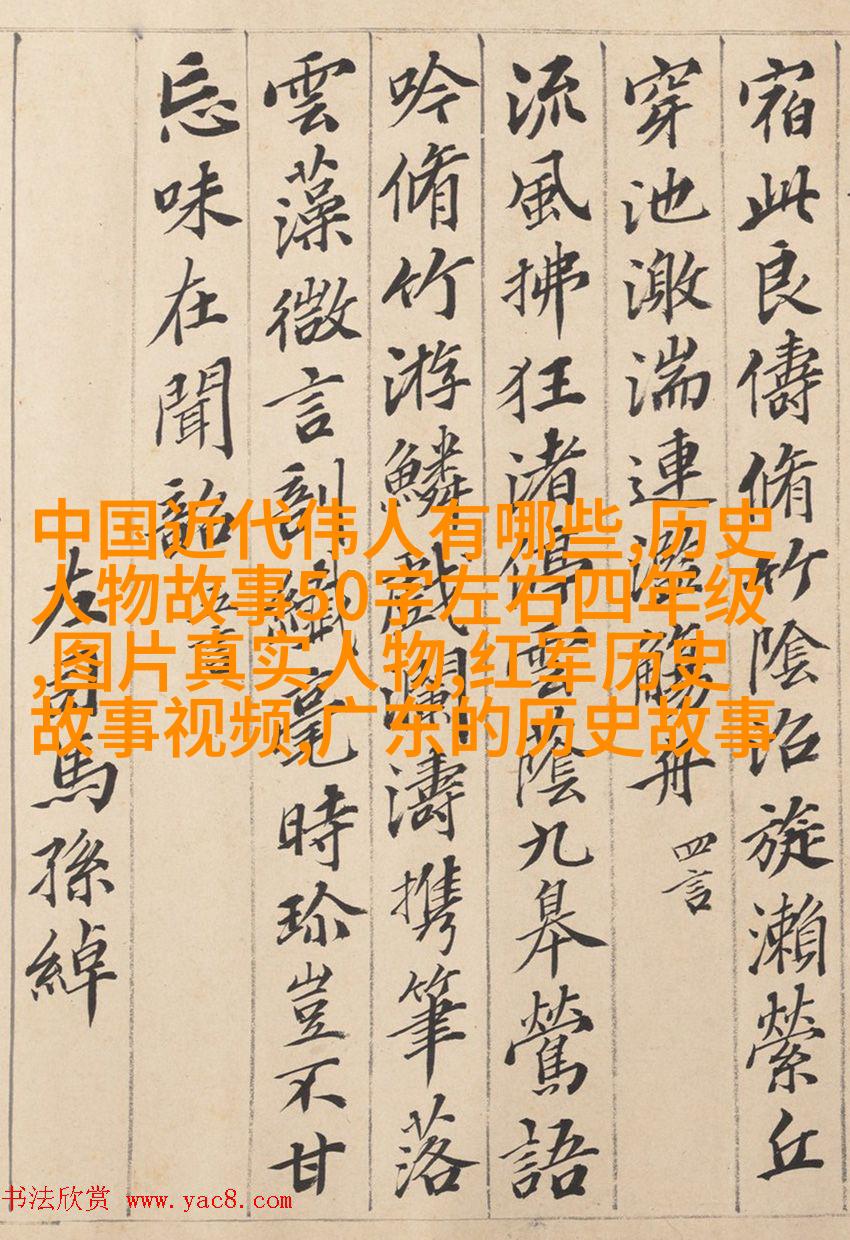 宿此良儔脩竹陰沼旋瀨縈丘
穿池激湍連濫觴舟 四言
流風拂狂渚停雲蔭九皋鶯語
吟脩竹游鱗戲瀾濤携筆落
雲藻微言剖纖毫時珎豈不甘
忘味在聞韶 五言
左司馬孫綽
中国近代伟人有哪些,历史
人物故事50字左右四年级
,图片真实人物,红军历史
故事视频,广东的历史故事
书法欣赏 www.yac8.com